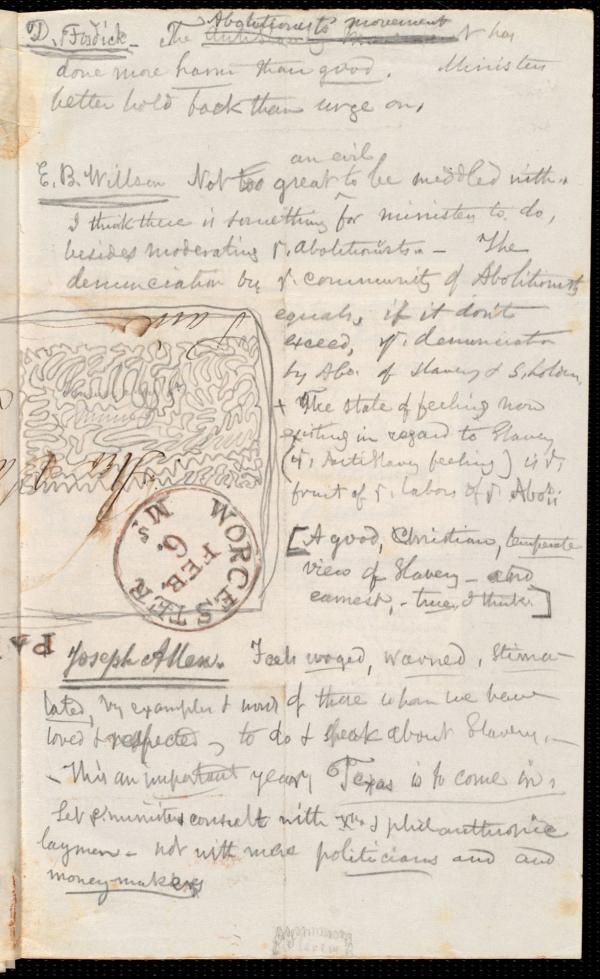 D. Fosdick - The Abolitionists movement has
done more harm than good. Ministers
better hold back than urge on.
E. B. Willson Not too great an evil to be meddled with.
I think there is something for ministers to do,
besides moderating y. abolitionists. - The
denunciation by y. community of Abolitionists
equals, if it don't
exceed, y. denunciation
by Abo. of Slavery & S. holders
+ The state of feeling now
existing in regard to Slavery
(y. Anti Slavery feeling) is y.
fruit of y. labors of y. Aboli
[A good, Christian, temperate
view of Slavery - and
earnest, - true, I think.]
WORCESTER
FEB.
6.
Ms
PA
Joseph Allen. Feels urged, warned, stimu-
lated, by examples & words of those whom we have
loved & respected - to do & speak about Slavery. -
- This an important year, Texas is to come in.
Let y. ministers consult with & philanthropic
laymen - not with mere politicians and and
money-makers